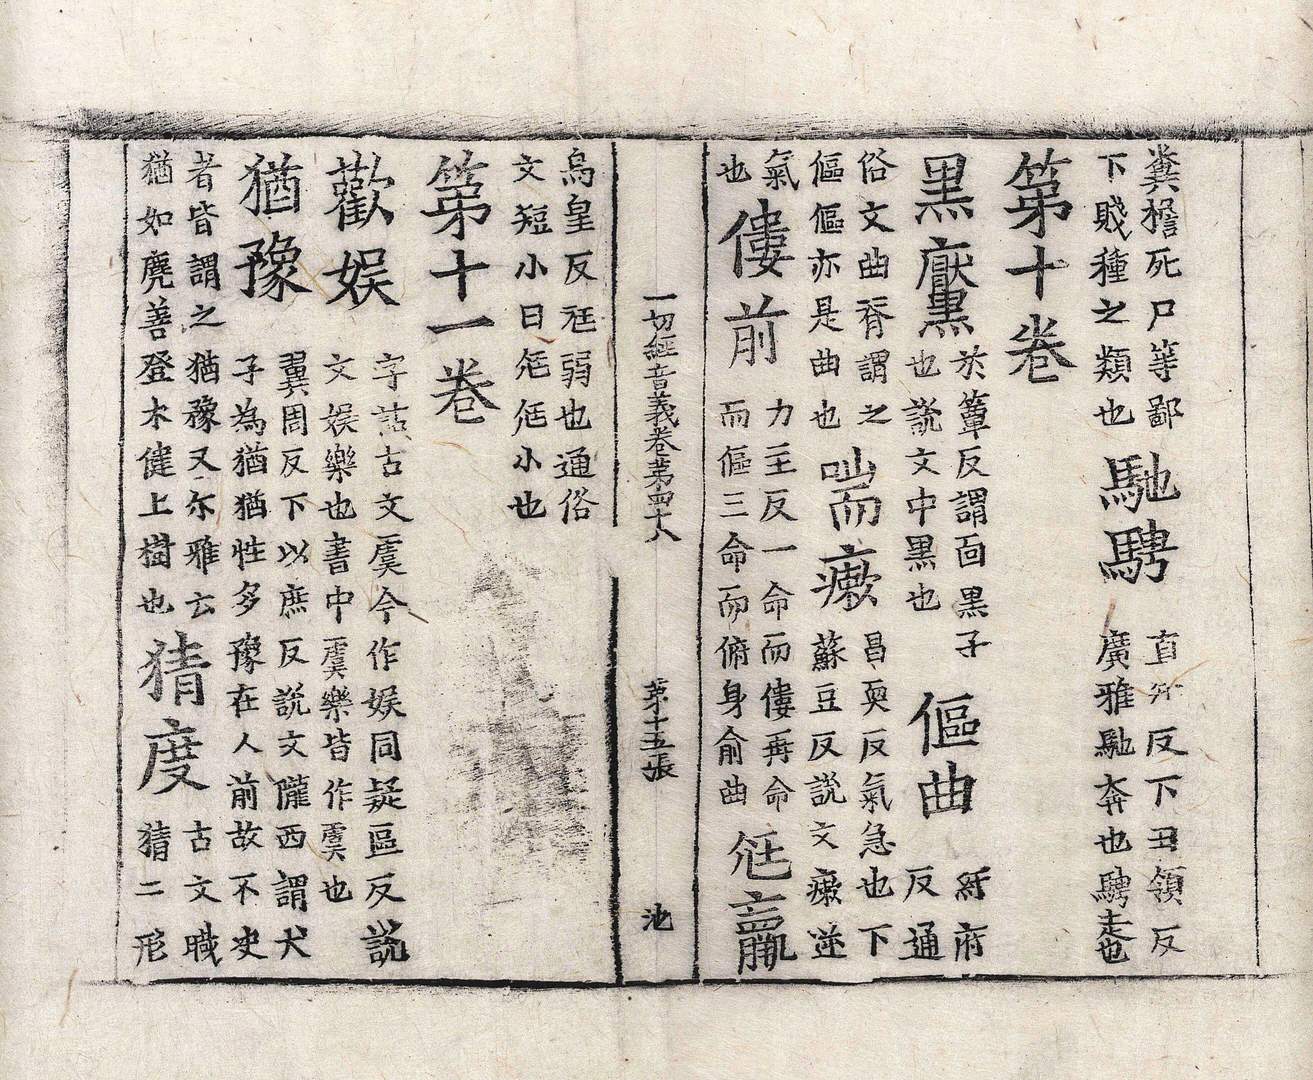 糞檐死尸等鄙
下賤種之類也
馳騁
直反下丑領反
廣雅馳奔也騁走也
第十卷
黑黶
於簟反謂面黑子
也說文中黑也
傴曲
紆府
反通
俗文曲脊謂之
傴傴亦是曲也
喘瘶
昌耎反氣急也下
蘇豆反說文瘶逆
氣
也
僂前
力主反一命而僂再命
而傴三命而俯身俞曲
尪羸
一切經音義卷第四十八
第十五張
池
烏皇反尪弱也通俗
文短小曰尪尪小也
第十一卷
歡娛
字詁古文虞今作娛同疑區反說
文娛樂也書中虞樂皆作虞也
猶豫
翼周反下以庶反說文隴西謂犬
子為猶猶性多豫在人前故不決
者皆謂之猶豫又尓雅云
猶如麂善登木健上樹也
猜度
古文䐶
猜二形